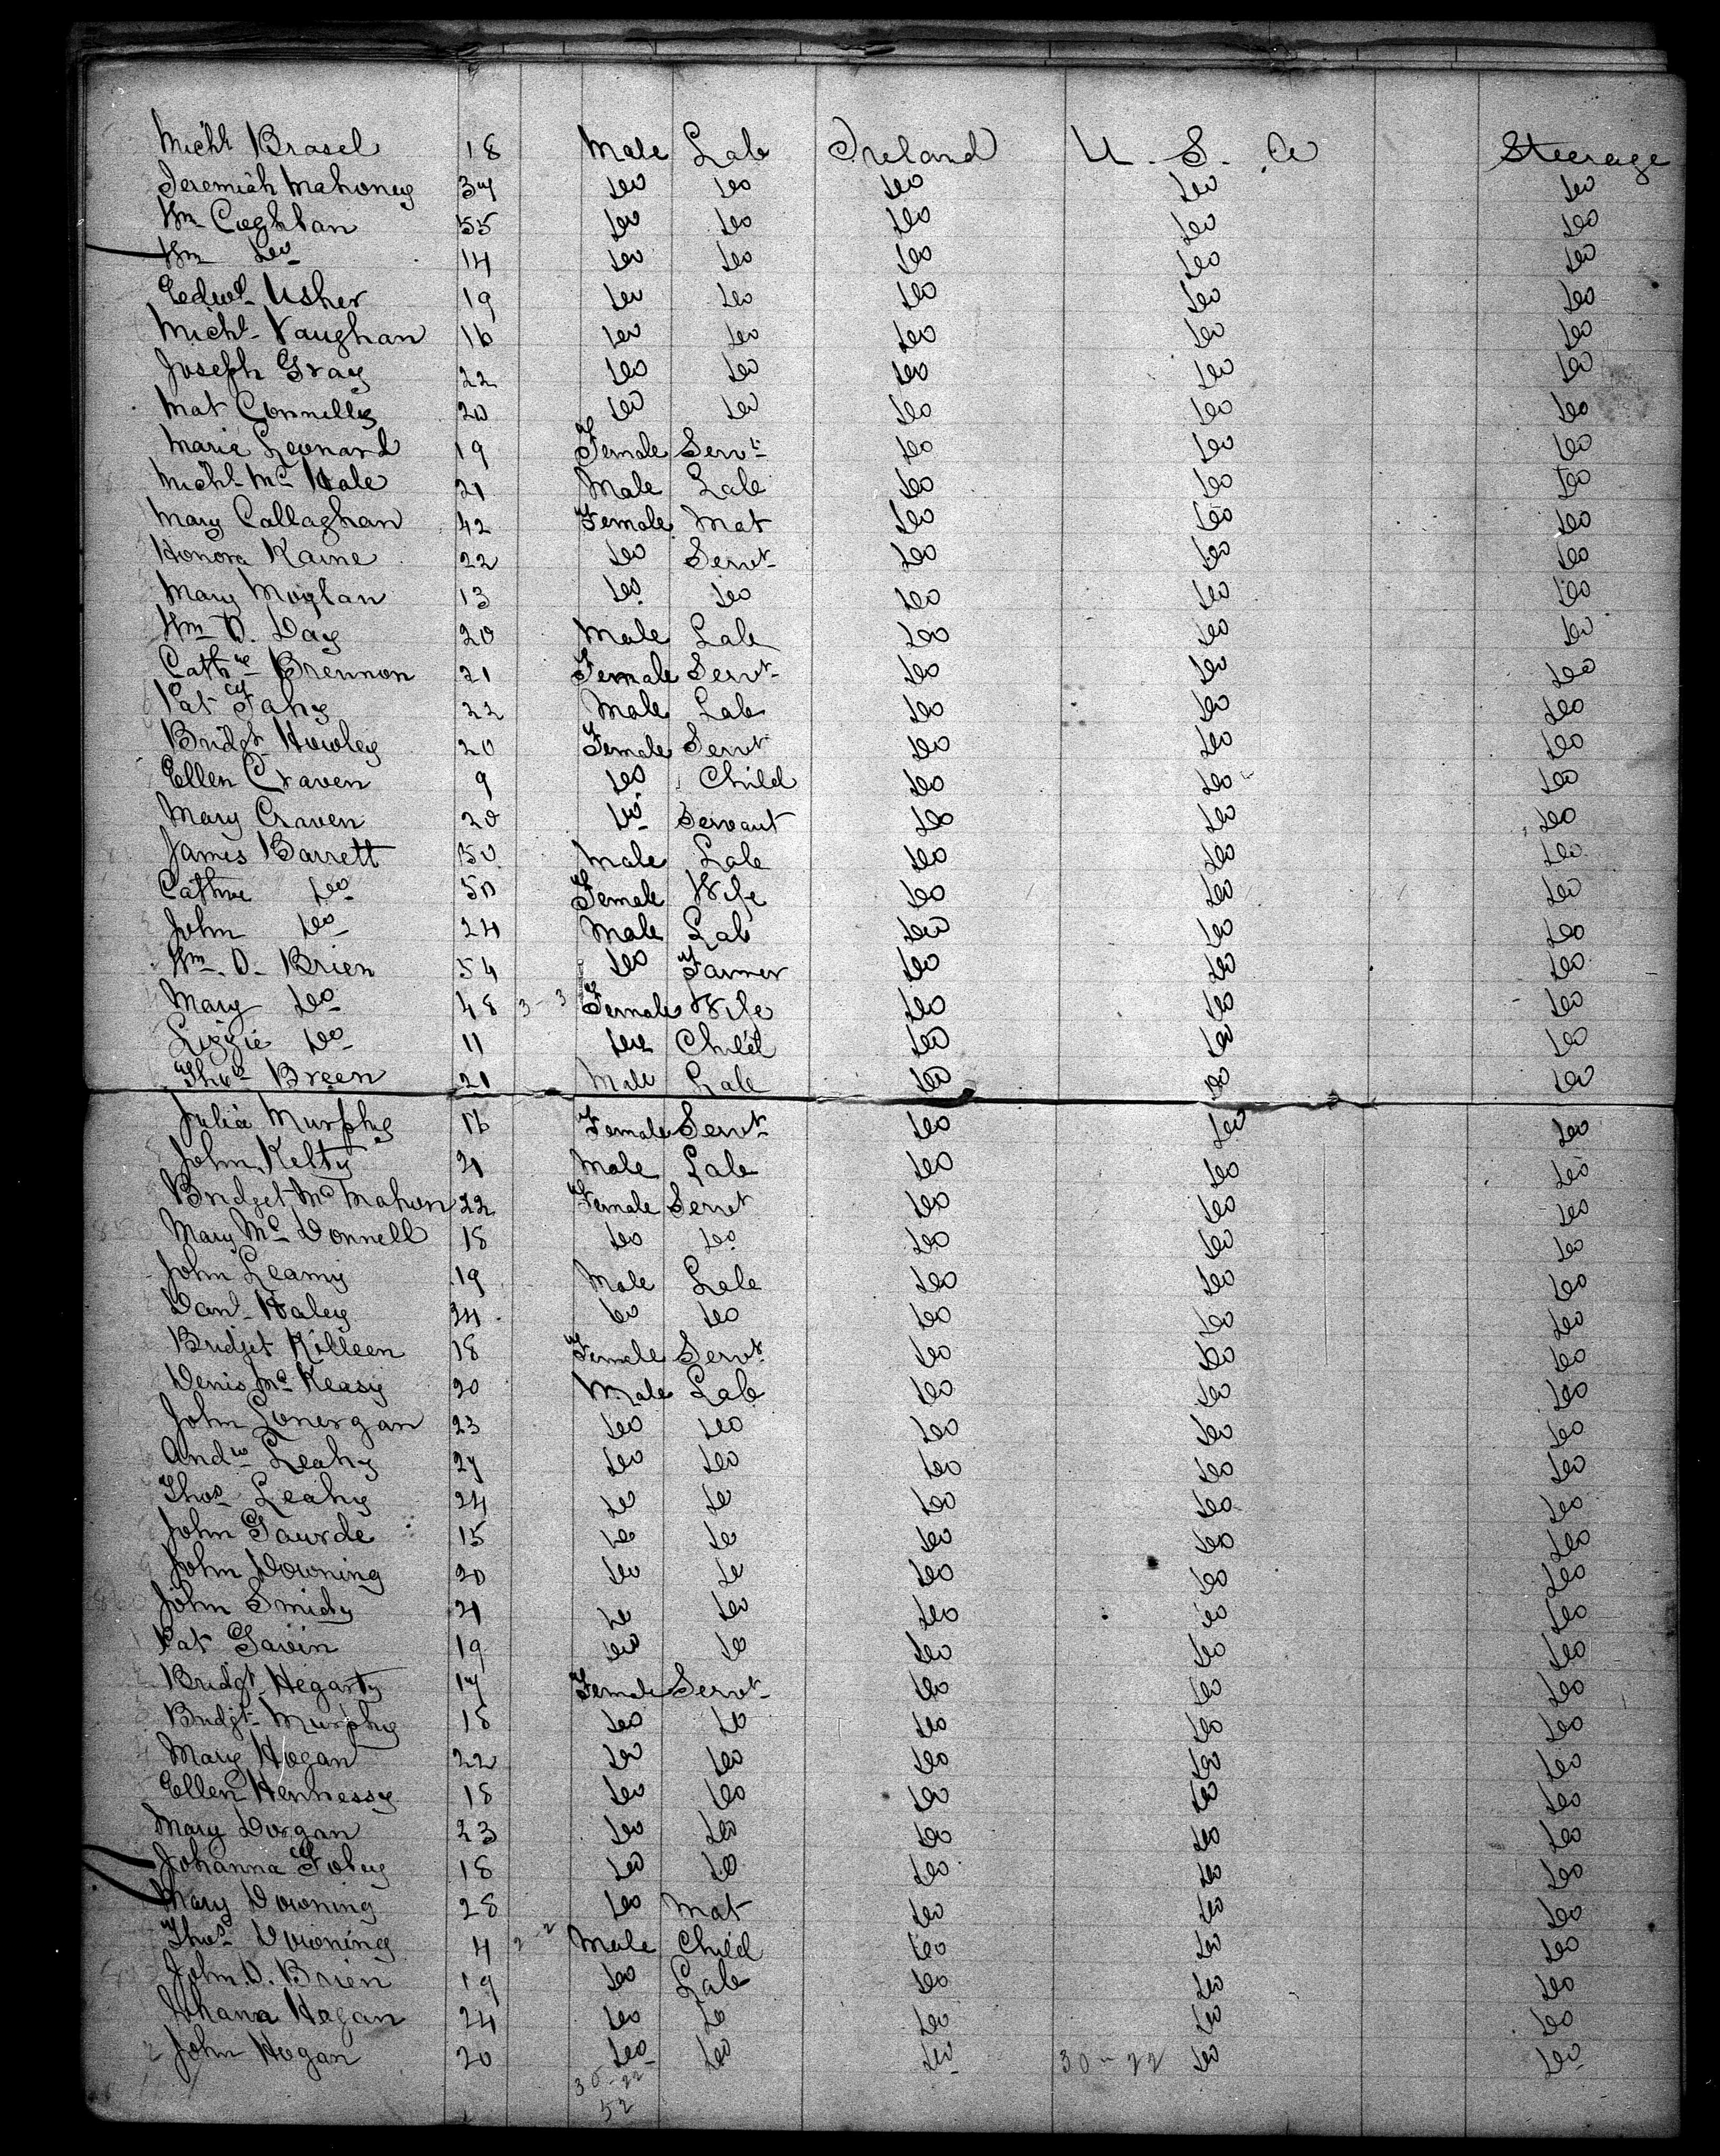 Michl Brasel 18 Male Lab Ireland U. S. A Steerage
Jeremiah Mahoney 37 Do Do Do Do Do
Wm Coghlan 55 Do Do Do Do Do
Wm Do 14 Do Do Do Do Do
Edwd Usher 19 Do Do Do Do Do
Michl Vaughan 16 Do Do Do Do Do
Joseph Gray 22 Do Do Do Do Do
Mat Connelly 20 Do Do Do Do Do
Maria Leonard 19 Female Servt Do Do Do
Michl Mc Hale 21 Male Lab Do Do Do
Mary Callaghan 42 Female Mat Do Do Do
Honora Kaine 22 Do Servt Do Do Do
Mary Moylan 13 Do Do Do Do Do
Wm O. Day 20 Male Lab Do Do Do
Cathne Brennon 21 Female Servt Do Do Do
Pat Fahy 22 Male Lab Do Do Do
Bridgt Howley 20 Female Servt Do Do Do
Ellen Craven 9 Do Child Do Do Do
Mary Craven 20 Do Servant Do Do Do
James Barrett 50 Male Lab Do Do Do
Cathne Do 50 Female Wife Do Do Do
John Do 24 Male Lab Do Do Do
Wm. O. Brien 54 Do Farmer Do Do Do
Mary Do 48 3-3 Female Wife Do Do Do
Lizzie Do 11 Do Child Do Do Do
Thos Breen 21 Male Lab Do Do Do
Julia Murphy 16 Female Servt Do Do Do
John Kelty 21 Male Lab Do Do Do
Bridget Mc Mahon 22 Female Servt Do Do Do
850 Mary Mc Donnell 18 Do Do Do Do Do
John Leamy 19 Male Lab Do Do Do
Danl Haley 24 Do Do Do Do Do
Bridget Killeen 18 Female Servt Do Do Do
Denis Mc Keasy 20 Male Lab Do Do Do
John Lonergan 23 Do Do Do Do Do
Andw Leahy 27 Do Do Do Do Do
Thos Leahy 24 Do Do Do Do Do
John 15 Do Do Do Do Do
John Downing 20 Do Do Do Do Do
860 John Smidy 21 Do Do Do Do Do
Pat Gavin 19 Do Do Do Do Do
Bridgt Hegarty 17 Female Servt Do Do Do
Bridgt Murphy 18 Do Do Do Do Do
Mary Hogan 22 Do Do Do Do Do
Ellen Hennessy 18 Do Do Do Do Do
Mary Dorgan 23 Do Do Do Do Do
Johanna Fobey 18 Do Do Do Do Do
Mary Downing 28 Do Mat Do Do Do
Thos Downing 4 2-2 Male Child Do Do Do
John O. Brien 19 Do Lab Do Do Do
Johana Hogan 24 Do Do Do Do Do
John Hogan 20 Do Do Do 30-22 Do Do
30-22
52